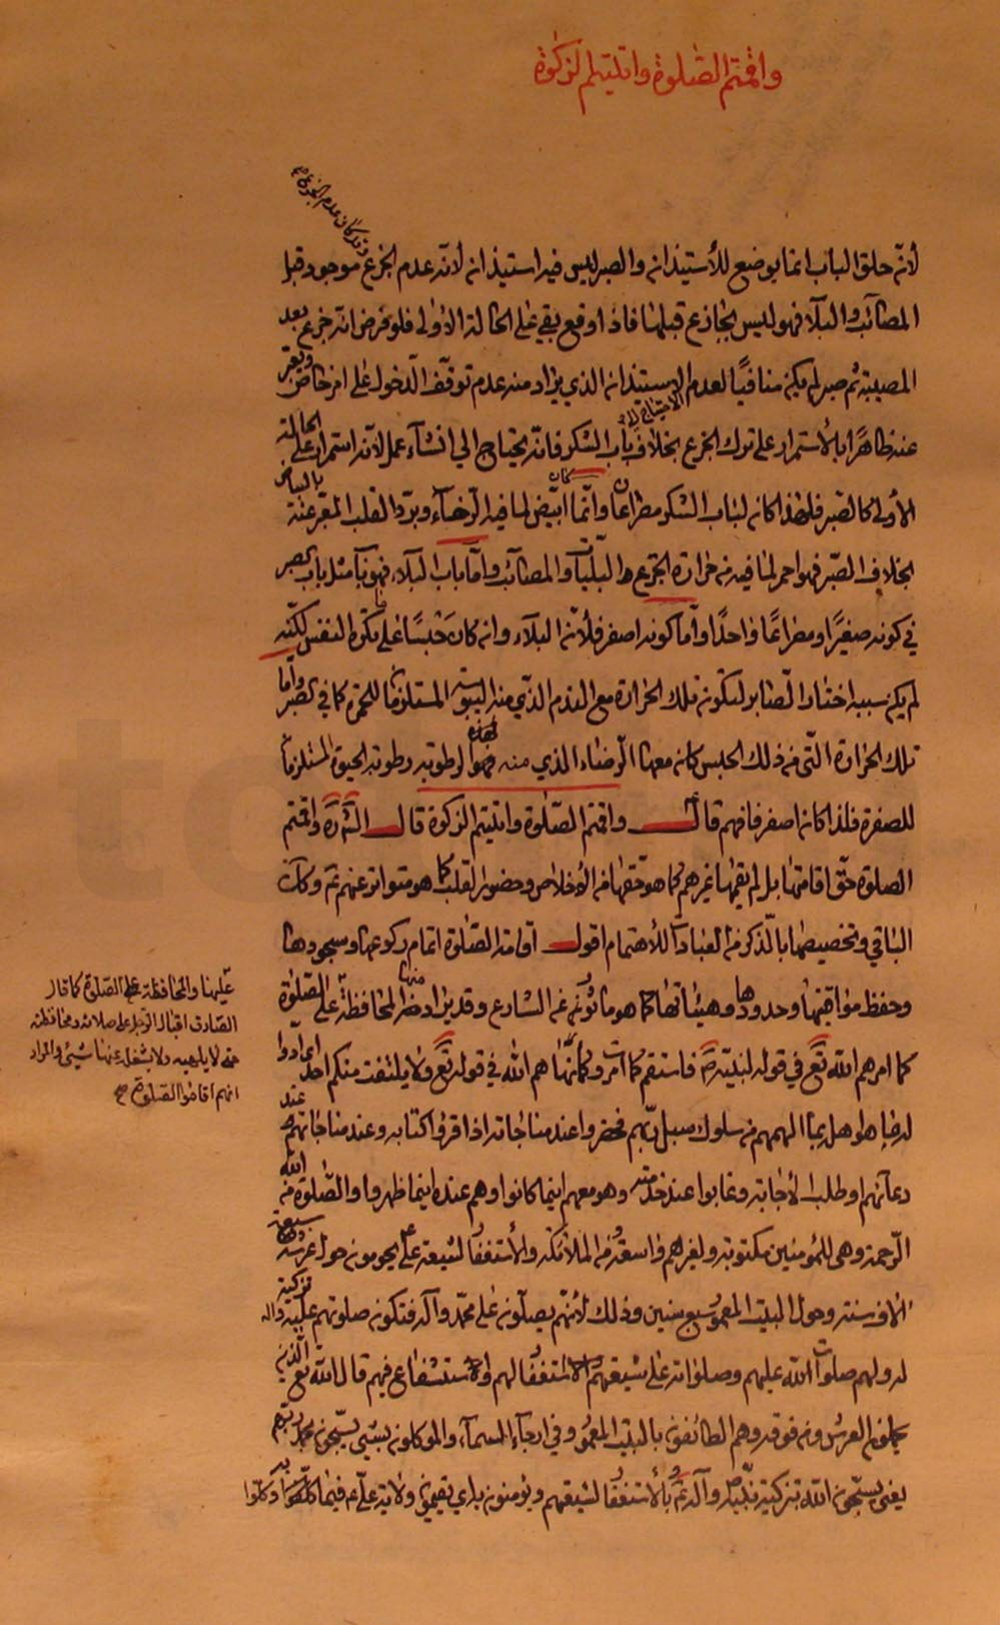 واقمتم الصلوة واتيتم الزكوة
وقد كان عدم الجزع
لأنه حلق الباب انما يوضع للأستيذان والصبر ليس فيه استيذان لأنه عدم الجزع موجود قبل
المصائب والبلآء فهو ليس بجازع قبلها فاذا وقع بقي على الحالة الاولى فلو فرض انه جزع بعد
المصيبة ثم صبر لم يكن منافيًا لعدم الاستيذان الذي يراد منه عدم توقف الدخول على امر خاص
عنه ظاهرًا بالأستمرار على ترك الجزع بخلاف باب الشكر فانه يحتاج الى انشآء عمل لأنه استمرار على الحالة
الأولى كالصبر فلهذا كان لباب الشكر مصراعان وانما كان ابيض لما فيه الرخآء وبرد القلب المعبر عنه بالبياض
بخلاف الصبر فهو احمر لما فيه من حرارة الجزع من البليات والمصائب واما باب البلآء فهو باب مثل باب الصبر
في كونه صغيرًا ومصراعًا واحدًا واما كونه اصفر فلأن البلآء وان كان حبسًا على ما تكره النفس لكنه
لم يكن سببه اختيار الصابر لتكون تلك الحرارة مع الدم الذي منه اليبوسة المستلزمان للحمرة كما في الصبر واما
تلك الحرارة التي من ذلك الحبس كان معها الرضاء الذي منه لهذه الرطوبة رطوبة الحيوة المستلزمة
للصفرة فلذا كان اصفر فافهم قال واقمتم الصلوة واتيتم الزكوة قال الشره واقمتم
الصلوة حق اقامتها بل لم يقمها غيرهم كما هو حقها من الأخلاص وحضور القلب كما هو متواتر عنهم ثم وكان
الباقي وتخصيصها بالذكر من العبادات للأهتمام اقول اقامة الصلوة اتمام ركوعها وسجودها
وحفظ مواقيتها وحدودها وهيئاتها كما هو مأثور عن الشارع وقد يراد منها المحافظة على الصلوة
كما امرهم الله تع في قوله لنبيه ص فاستقم كما امرت وكما نهاهم الله في قوله تع ولا يلتفت منكم احد
بما الهمهم من سلوك سبل ربهم فحضروا عند مناجاته اذا قرؤا كتابه وعند مناجاتهم عند
دعآئهم وطلب الأجابة وغابوا عند خدمته وهو معهم اينما كانوا وهم عنده اينما ظهروا والصلوة من الله
الرحمة وهي للمؤمنين مكتوبة ولغيرهم واسعة ومن الملائكة والأستغفار لشيعة علي يحومون حول عرشه سبعة
الاف سنة وحول البيت المعمور سبع سنين وذلك لأنهم يصلون على محمد وآله فتكون صلوتهم عليه واله تزكية
له ولهم صلوات الله عليهم وصلواته على شيعتهم الاستغفار لهم والاستشفاع فيهم قال الله تع الذين
يحملون العرش ومن فوقه وهم الطائفون بالبيت المعمور وفي ارجآء السمآء والموكلون بشيء يسبحون بحمد ربهم
يعني يسبحون الله بتزكية نبيه ص وآله ع بالأستغفار لشيعتهم ويؤمنون به اي يقيمون ولاية علي ع فيما كلفوا به وكلوا
عليها والمحافظة على الصلوة كما قال
الصادق اقبال الرجل على صلاته ومحافظته
حتى لا يلهيه ولا يشغله عنها شيئ والمراد
انهم اقاموا الصلوة